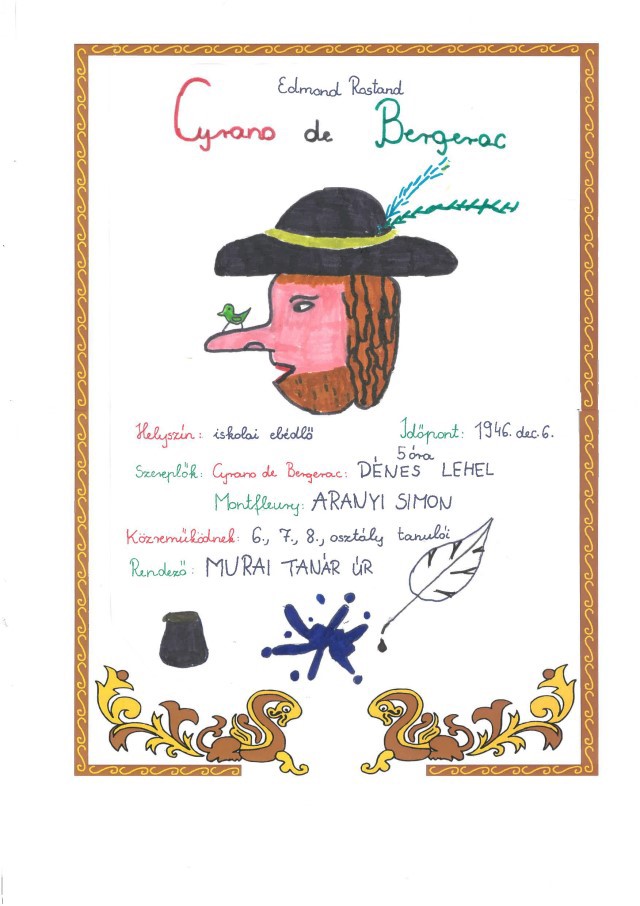 Edmond Rostand
Cyrano de Bergerac
Helyszín: iskolai ebédlő
Időpont: 1946. dec. 6.
5 óra
Szereplők: Cyrano de Bergerac: DÉNES LEHEL
Montfleury: ARANYI SIMON
Közreműködnek: 6., 7., 8., osztály tanulói
Rendező: MURAI TANÁR ÚR